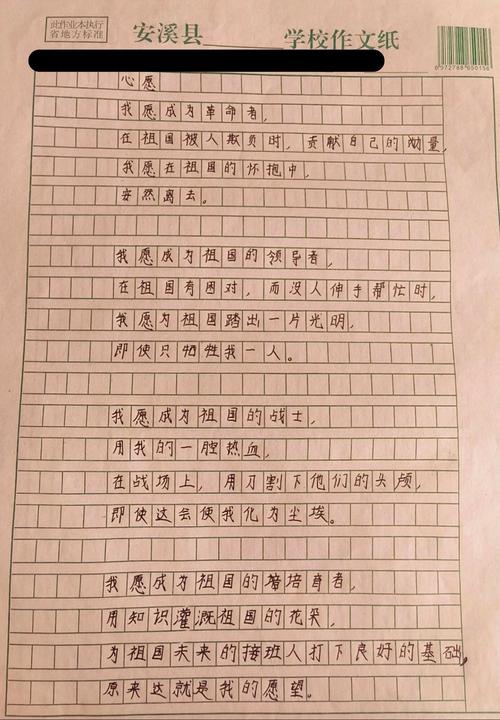 此作业本执行
省地方标准
安溪县 学校作文纸
心愿
我愿成为革命者，
在祖国被人欺负时，贡献自己的力量，
我愿在祖国的怀抱中，
安然离去。
我愿成为祖国的领导者，
在祖国有困对，而没人伸手帮忙时，
我愿为祖国踏出一片光明，
即使只牺牲我一人。
我愿成为祖国的战士，
用我的一腔热血，
在战场上，用刀割下他们的头颅，
即使这会使我化为尘埃。
我愿成为祖国的培育者，
用知识灌溉祖国的花朵，
为祖国未来的接班人打下良好的基础，
原来这就是我的愿望。